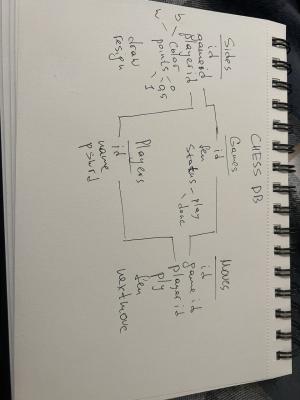 CHESS DB
Sides
id
gameid
playerid
color
b
w
points
0
0,5
1
draw
resign
Games
id
fen
status - play
done
Players
id
name
pswrd
Moves
id
game id
player id
ply
fen
nextmove